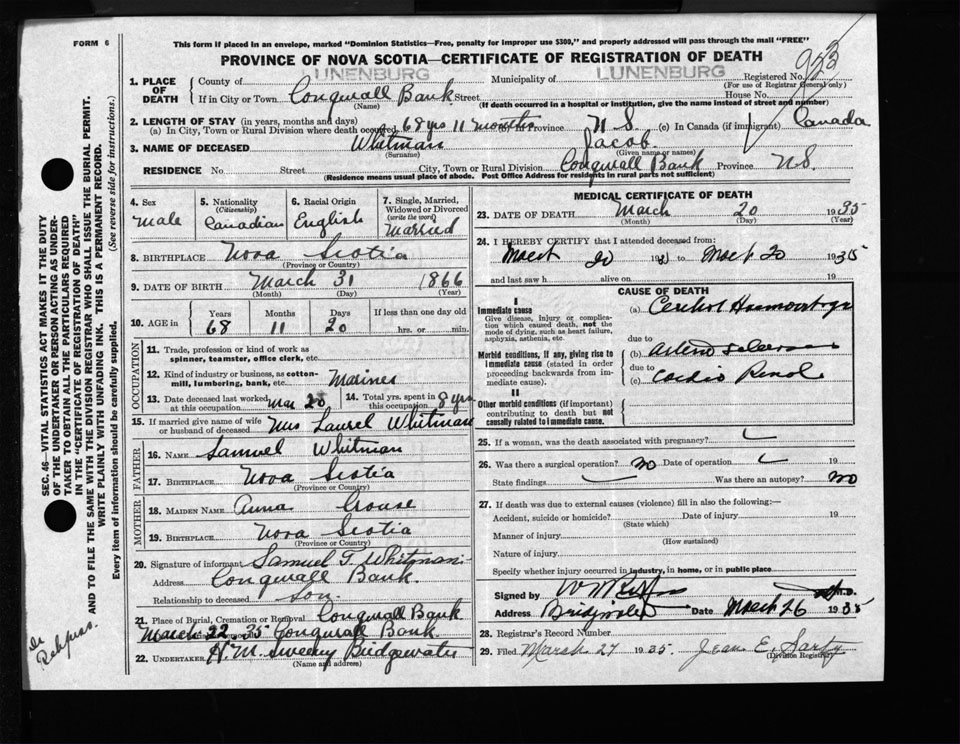 FORM 6
This form if placed in an envelope, marked "Dominion Statistics—Free, penalty for improper use $300," and properly addressed will pass through the mail "FREE"
PROVINCE OF NOVA SCOTIA—CERTIFICATE OF REGISTRATION OF DEATH
1. PLACE OF DEATH
County of LUNENBURG Municipality of LUNENBURG Registered No. 923
(For use of Registrar General only)
If in City or Town Conquerall Bank Street House No.
(Name) (If death occurred in a hospital or institution, give the name instead of street and number)
2. LENGTH OF STAY (in years, months and days)
(a) In City, Town or Rural Division where death occurred 68 yrs 11 months Province N S. (c) In Canada (if immigrant) Canada
3. NAME OF DECEASED Whitman Jacob.
(Surname) (Given name or names)
RESIDENCE No. Street City, Town or Rural Division Conquerall Bank Province N.S.
(Residence means usual place of abode. Post Office Address for residents in rural parts not sufficient)
4. Sex
Male
5. Nationality
(Citizenship)
Canadian
6. Racial Origin
English
7. Single, Married, Widowed or Divorced
(write the word)
Married
8. BIRTHPLACE Nova Scotia
(Province or Country)
9. DATE OF BIRTH March 31 1866
(Month) (Day) (Year)
10. AGE in
Years Months Days If less than one day old
68 11 20 hrs. or min.
OCCUPATION
11. Trade, profession or kind of work as spinner, teamster, office clerk, etc.
12. Kind of industry or business, as cotton-mill, lumbering, bank, etc. Marines
13. Date deceased last worked at this occupation Mar 20
14. Total yrs. spent in this occupation 8 yrs
15. If married give name of wife or husband of deceased Mrs Laurel Whitman
FATHER
16. NAME Samuel Whitman
17. BIRTHPLACE Nova Scotia
(Province or Country)
MOTHER
18. MAIDEN NAME Anna Crouse
19. BIRTHPLACE Nova Scotia
(Province or Country)
20. Signature of informant Samuel T. Whitman
Address Conquerall Bank.
Relationship to deceased son.
21. Place of Burial, Cremation or Removal Conquerall Bank
March 22 35 Conquerall Bank.
22. UNDERTAKER H. M. Sweeny Bridgewater
(Name and address)
MEDICAL CERTIFICATE OF DEATH
23. DATE OF DEATH March 20 1935
(Month) (Day) (Year)
24. I HEREBY CERTIFY that I attended deceased from:
March 20 193 to March 20 1935
and last saw h alive on 19
CAUSE OF DEATH
I
Immediate cause
Give disease, injury or complication which caused death, not the mode of dying, such as heart failure, asphyxia, asthenia, etc.
(a) Cerebral Haemorrhage
due to
Morbid conditions, if any, giving rise to immediate cause (stated in order proceeding backwards from immediate cause).
(b) Arterio sclerosis
due to
(c) Cardio Renal
II
Other morbid conditions (if important) contributing to death but not causally related to immediate cause.
25. If a woman, was the death associated with pregnancy?
26. Was there a surgical operation? No Date of operation 19
State findings Was there an autopsy? no
27. If death was due to external causes (violence) fill in also the following:—
Accident, suicide or homicide? Date of injury 19
(State which)
Manner of injury
(How sustained)
Nature of injury
Specify whether injury occurred in industry, in home, or in public place
Signed by M.D.
Address Bridgewater Date March 26 1935
28. Registrar's Record Number
29. Filed March 27 1935. Jean E. Sarty
(Division Registrar)
SEC. 46—VITAL STATISTICS ACT MAKES IT THE DUTY OF THE UNDERTAKER OR PERSON ACTING AS UNDERTAKER TO OBTAIN ALL THE PARTICULARS REQUIRED IN THE "CERTIFICATE OF REGISTRATION OF DEATH"
AND TO FILE THE SAME WITH THE DIVISION REGISTRAR WHO SHALL ISSUE THE BURIAL PERMIT.
WRITE PLAINLY WITH UNFADING INK. THIS IS A PERMANENT RECORD.
Every item of information should be carefully supplied. (See reverse side for instructions.)
Dr Rehfuss.